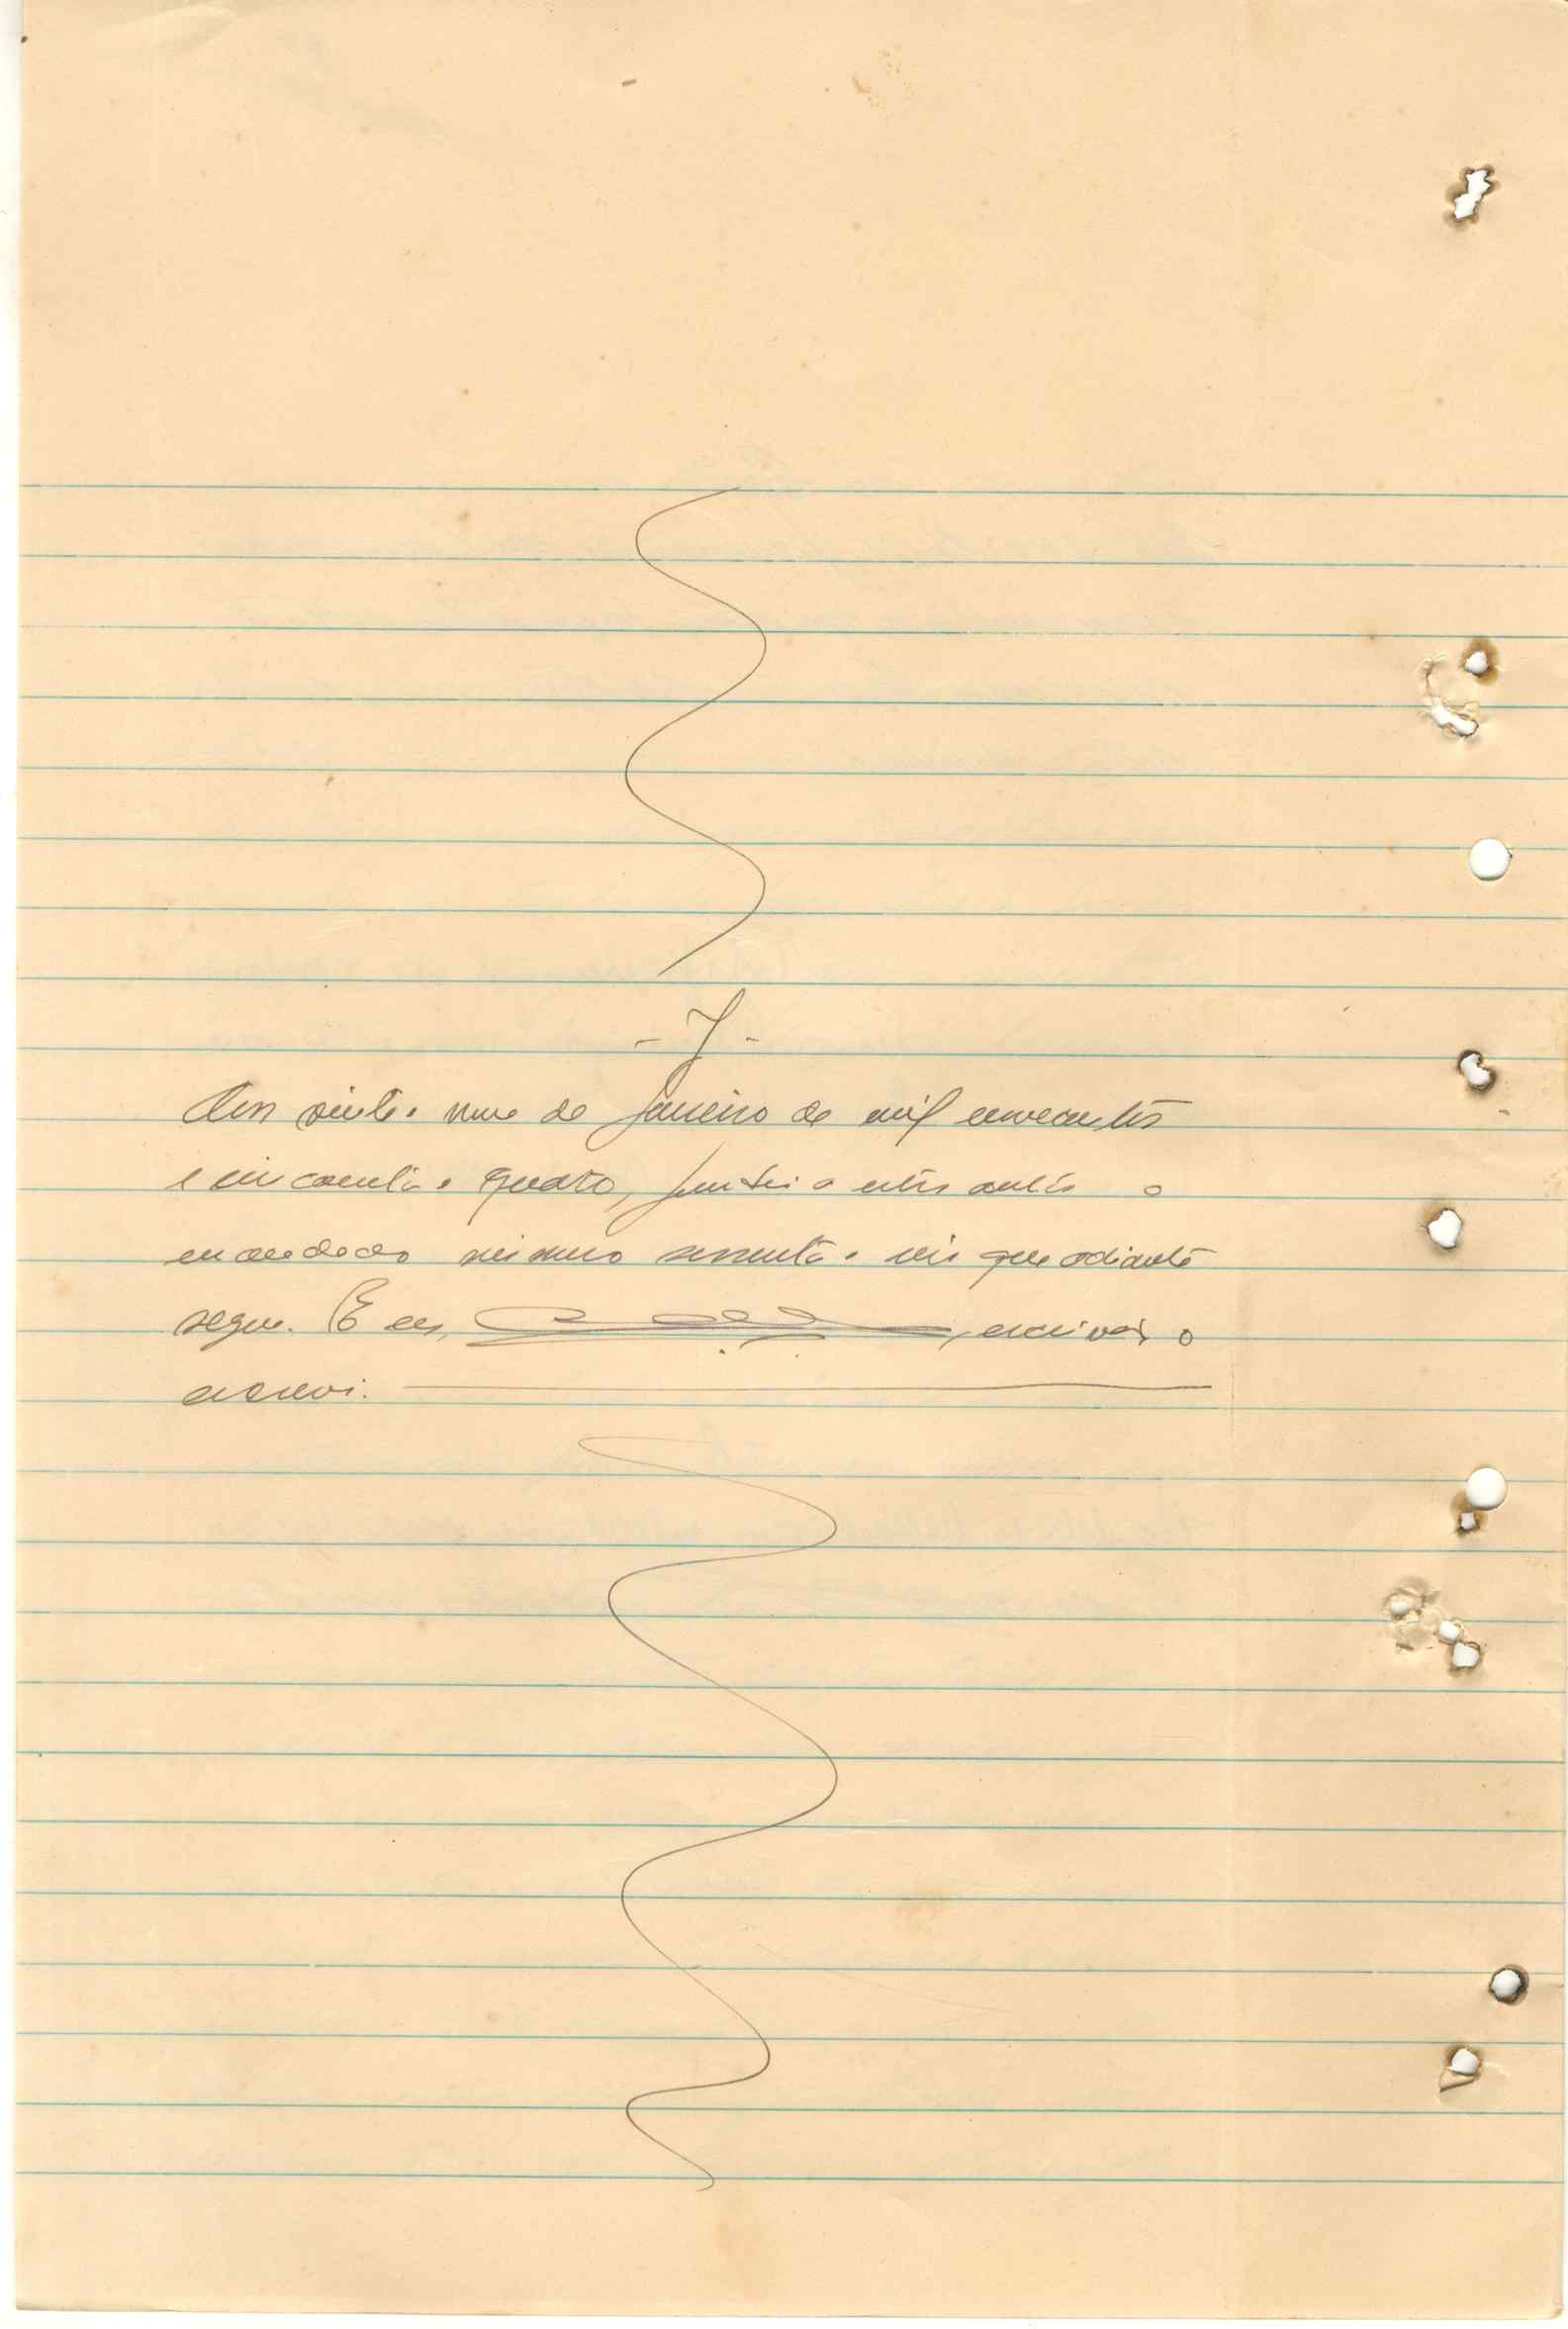 - J -
Aos vinte e nove de Janeiro de mil novecentos
e cincoenta e quatro, juntei a estes autos o
mandado número sessenta e seis que adiante
segue. E eu, escrivão o
escrevi.